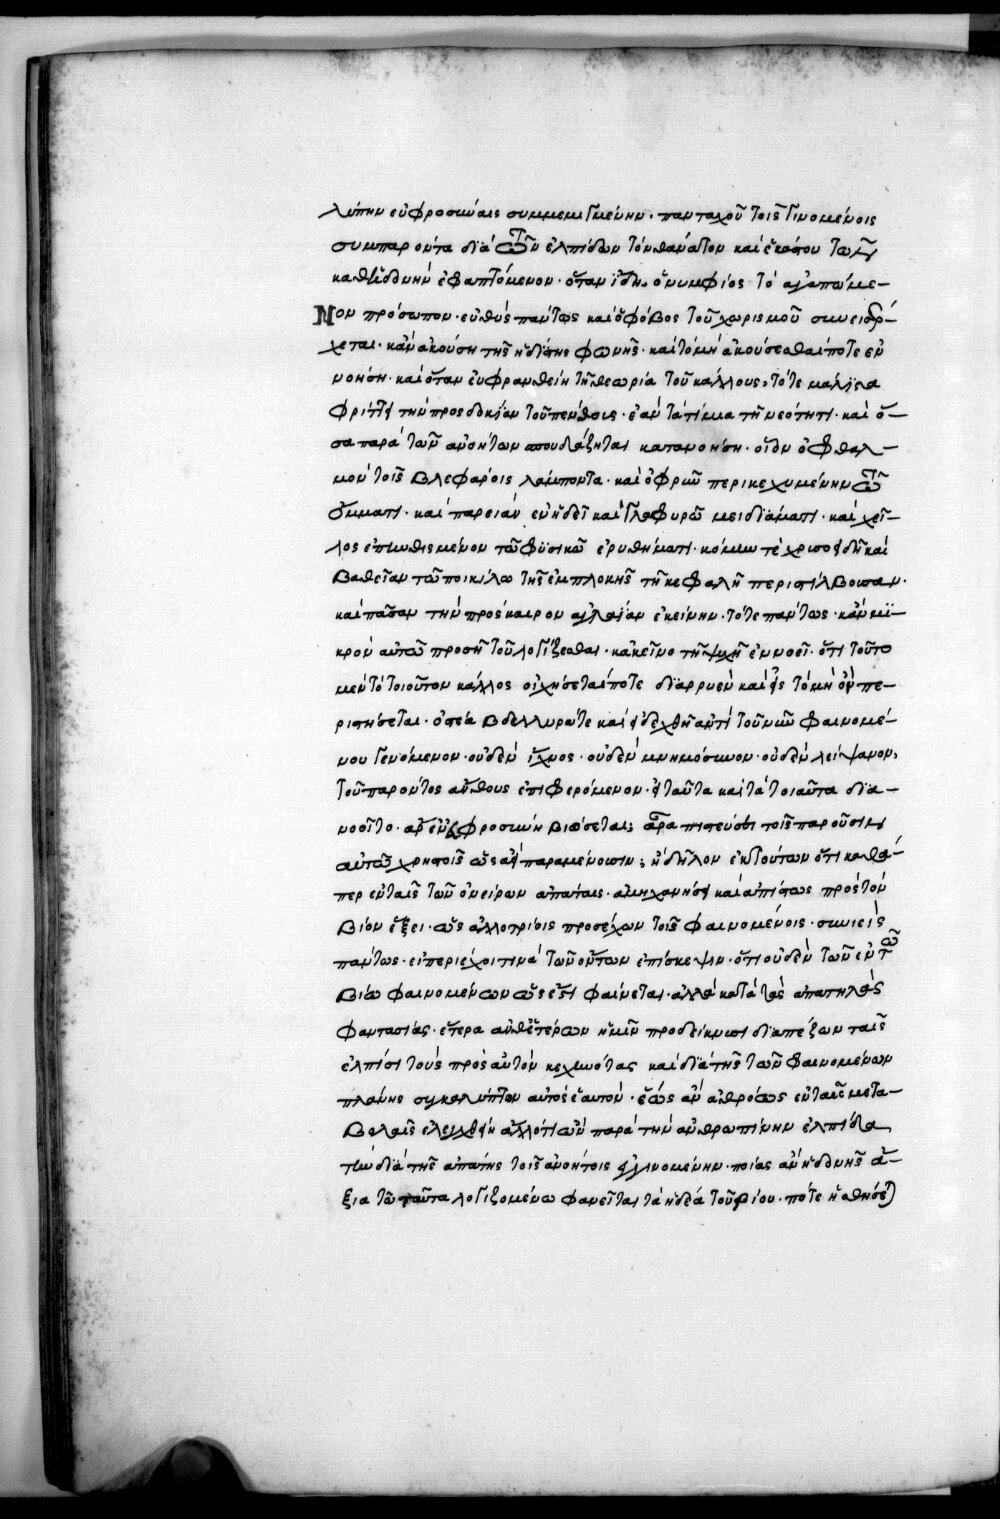 λύπην εὐφροσύναις συμμεμιγμένην · πανταχοῦ τοῖς γινομένοις
συμπαρόντα διὰ τῶν ἐλπίδων τὸν θάνατον καὶ ἑκάστου τῶν
καθ' ἡδονὴν ἐφαπτόμενον · ὅταν ἴδῃ ὁ νυμφίος τὸ ἀγαπώμε-
Νον πρόσωπον · εὐθὺς πάντως καὶ ὁ φόβος τοῦ χωρισμοῦ συνεισέρ-
χεται · κἂν ἀκούσῃ τῆς ἡδίστης φωνῆς · καὶ τὸ μὴ ἀκούσεσθαί ποτε ἐν
νοήσῃ · καὶ ὅταν εὐφρανθείη τῇ θεωρία τοῦ κάλλους, τότε μάλιστα
φρίττει τὴν προσδοκίαν τοῦ πένθους · ἐὰν τὰ τίμια τῇ νεότητι · καὶ ὅ-
σα παρὰ τῶν ἀνοήτων σπουδάζηται κατανοήσῃ · οἷον ὀφθαλ-
μὸν τοῖς βλεφάροις λάμποντα · καὶ ὀφρῦν περικεχυμένην τῶ
ὄμματι · καὶ παρειὰν ἐν ἡδεῖ καὶ γλαφυρῶ μειδιάματι · καὶ χεῖ-
λος ἐπηνθισμένον τῶ φυσικῶ ἐρυθήματι · κόμην τὲ χρισοειδῆ καὶ
βαθεῖαν τῶ ποικίλω τῆς ἐμπλοκῆς τῇ κεφαλῇ περιστίλβουσαν ·
καὶ πᾶσαν τὴν πρόσκαιρον ἀγλαΐαν ἐκείνην · τότε πάντως · κἂν μι-
κρὸν αὐτῶ προσῇ τοῦ λογίζεσθαι · κακεῖνο τῇ ψυχῇ ἐννοεῖ · ὅτι τοῦτο
μὲν τὸ τοιοῦτον κάλλος οἰχήσεταί ποτε διαρρυὲν καὶ εἰς τὸ μὴ ὂν πε-
ριστήσεται · ὀστέα βδελλυρά τε καὶ ἀειδεχθῆ ἀντὶ τοῦ νῦν φαινομέ-
νου γενόμενον · οὐδὲν ἴχνος · οὐδὲν μνημόσυνον · οὐδὲν λείψανον,
τοῦ παρόντος ἄνθους ἐπιφερόμενον · εἰ ταῦτα καὶ τὰ τοιαῦτα δια-
νοοῖτο · ἆρ' ἐν εὐφροσύνῃ βιώσεται; ἆρα πιστεύσει τοῖς παροῦσιν
αὐτῶ χρηστοῖς ὡς ἀεὶ παραμένουσιν; ἢ δῆλον ἐκ τούτων ὅτι καθά-
περ ἐν ταῖς τῶν ὀνείρων ἀπάταις · ἀμηχανήσει καὶ ἀπίστως πρὸς τὸν
βίον ἕξει · ὡς ἀλλοτρίοις προσέχων τοῖς φαινομένοις · συνιεὶς
πάντως · εἰ περιέχοι τινὰ τῶν ὄντων ἐπίσκεψιν · ὅτι οὐδὲν τῶν ἐν τῶ
βίω φαινομένων ὡς ἔστι φαίνεται · ἀλλὰ κατὰ τὰς ἀπατηλὰς
φαντασίας · ἕτερα ἀνθ' ἑτέρων ἡμῖν προδείκνυσι διαπαίζων ταῖς
ἐλπίσι τοὺς πρὸς αὐτὸν κεχηνότας καὶ διὰ τῆς τῶν φαινομένων
πλάνης συγκαλύπτων αὐτὸς ἑαυτὸν · ἕως ἂν ἀθρόως ἐν ταῖς μετα-
βολαῖς ἐλεγχθείη ἄλλό τι ὢν παρὰ τὴν ἀνθρωπίνην ἐλπίδα
τὴν διὰ τῆς ἀπάτης τοῖς ἀνοήτοις ἐγγινομένην · ποίας ἂν ἡδονῆς ἄ-
ξια τῶ ταῦτα λογιζομένω φανεῖται τὰ ἡδέα τοῦ βίου · πότε ἡσθήσεται